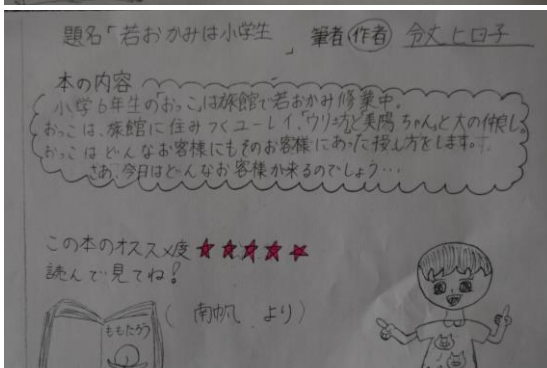 題名「若おかみは小学生」 筆者 作者 令丈ヒロ子
本の内容
小学6年生の「おっこ」は旅館で若おかみ修業中。
おっこは、旅館に住みつくユーレイ、「ウリ坊」と「美陽ちゃん」と大の仲良し。
おっこはどんなお客様にもそのお客様にあった接し方をします。
さあ、今日はどんなお客様が来るのでしょう…
この本のオススメ度★★★★★
読んで見てね!
(南帆 より)
ももたろう